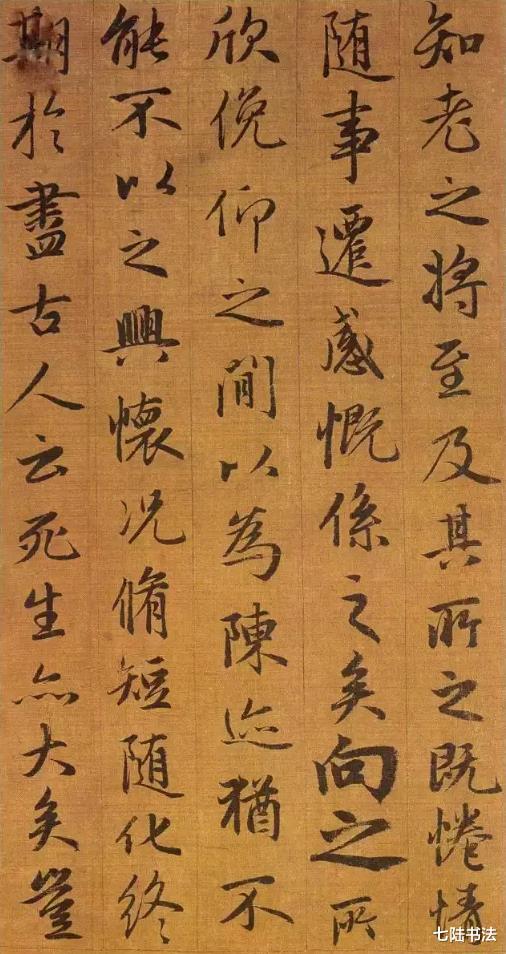 知老之將至及其所之既惓情
隨事遷感慨係之矣向之所
欣俛仰之間以為陳迹猶不
能不以之興懷況脩短隨化終
期於盡古人云死生亦大矣豈
七陆书法